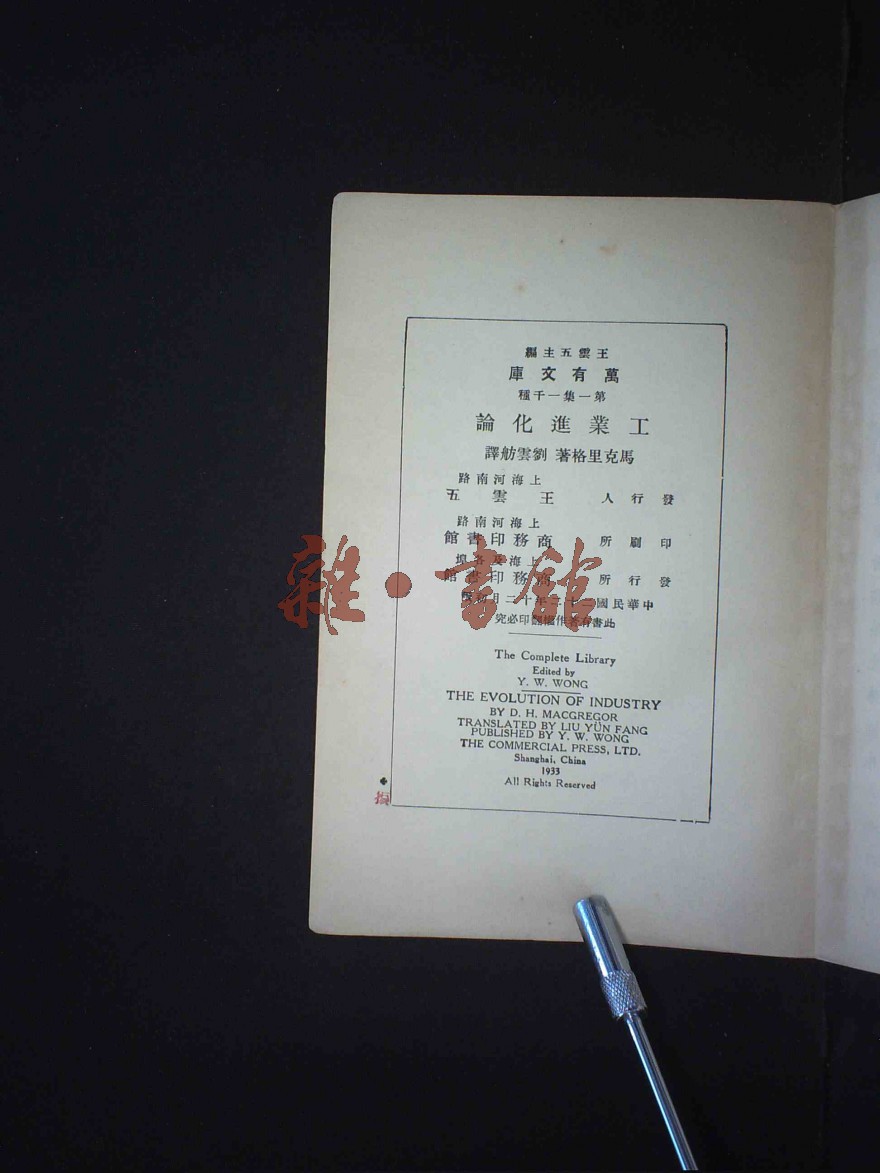 王雲五主編
萬有文庫
第一集一千種
工業進化論
馬克里格著 劉雲舫譯
上海河南路
發行人 王雲五
上海河南路
印刷所 商務印書館
上海及各埠
發行所 商務印書館
中華民國二十二年十二月初版
此書有著作權翻印必究
The Complete Library
Edited by
Y. W. WONG
THE EVOLUTION OF INDUSTRY
BY D. H. MACGREGOR
TRANSLATED BY LIU YÜN FANG
PUBLISHED BY Y. W. WONG
THE COMMERCIAL PRESS, LTD.
Shanghai, China
1933
All Rights Reserved
雜·書館